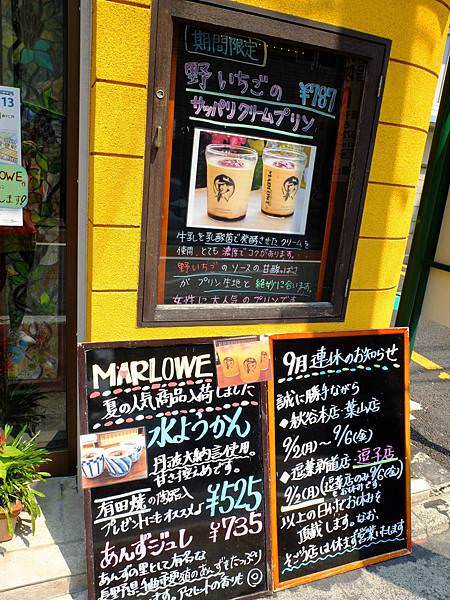 期間限定
野いちごの
¥787
サッパリクリームプリン
牛乳を乳酸菌で発酵させたクリームを
使用、とても濃厚でコクがあります。
野いちごのソースの甘酸っぱさ
がプリン生地と絶妙に合います
女性に大人気のプリンです
13
MARLOWE
夏の人気商品入荷しました
水ようかん
丹波大納言使用
甘さ控えめです。
有田焼の陶器入
プレゼントにもオススメ
¥525
¥735
あんずジュレ
あんずの里として有名な
長野県千曲市更埴のあんずをたっぷり
です。アマレットの香りも◎
9月連休のお知らせ
誠に勝手ながら
◆秋谷本店・葉山店
9/2(月)〜9/6(金)
◆逗葉新道店・逗子店
9/3(月)
以上の日付でお休みを
頂戴します。なお、
その他店は休まず営業いたします